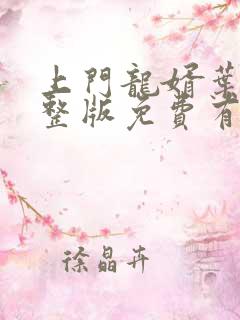 上門龍婿葉
整版免費有
徐晶卉